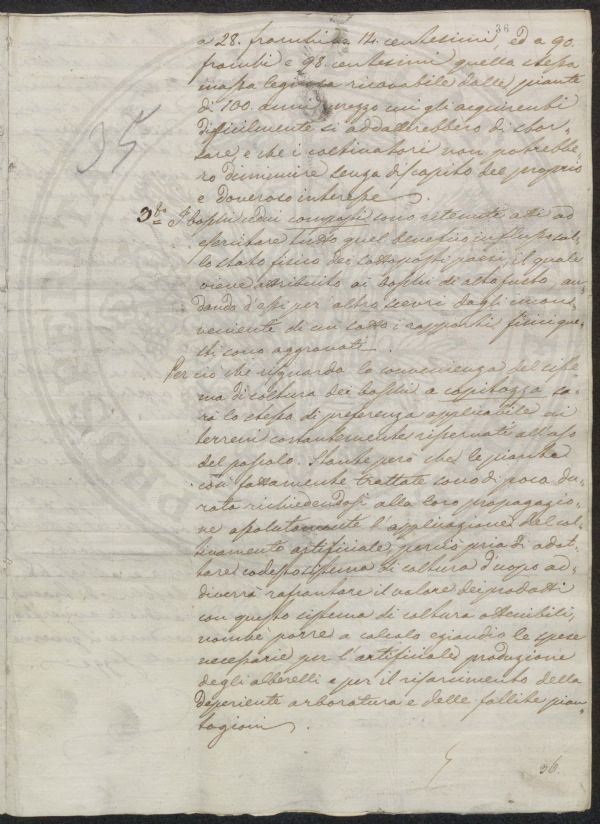 36
a 28. franchi e 14. centesimi, ed a 90.
franchi e 98. centesimi quella stessa
massa legnosa ricavabile dalle piante
di 100. anni, prezzo cui gli acquirenti
difficilmente si addatterebbero di sbor-
sare, e che i coltivatori non potrebbe-
ro diminuire senza discapito del proprio
e doveroso interesse.
35
3° I boschi cedui composti sono ritenuti atti ad
esercitare tutto quel benefico influsso sul-
lo stato fisico dei sottoposti paesi, il quale
viene attribuito ai boschi di alto fusto, an-
dando d'essi per altro scevri dagli incon-
venienti di cui sotto i rapporti fisici que-
sti sono aggravati.
Per ciò che riguarda la convenienza del siste-
ma di coltura dei boschi a capitozza sa-
rà lo stesso di preferenza applicabile ai
terreni costantemente riservati all'uso
del pascolo. Stante però che le piante
così fattamente trattate sono di poca du-
rata richiedendosi alla loro propagazio-
ne assolutamente l'applicazione del col-
tivamento artificiale, perciò pria di adot-
tare codesto sistema di coltura d'uopo ad-
diverrà raffrontare il valore dei prodotti
con questo sistema di coltura ottenibili,
nonché porre a calcolo eziandio le spese
necessarie per l'artificiale produzione
degli alberelli e per il rifarcimento della
deperiente arboratura e delle fallite pian-
tagioni.
36.